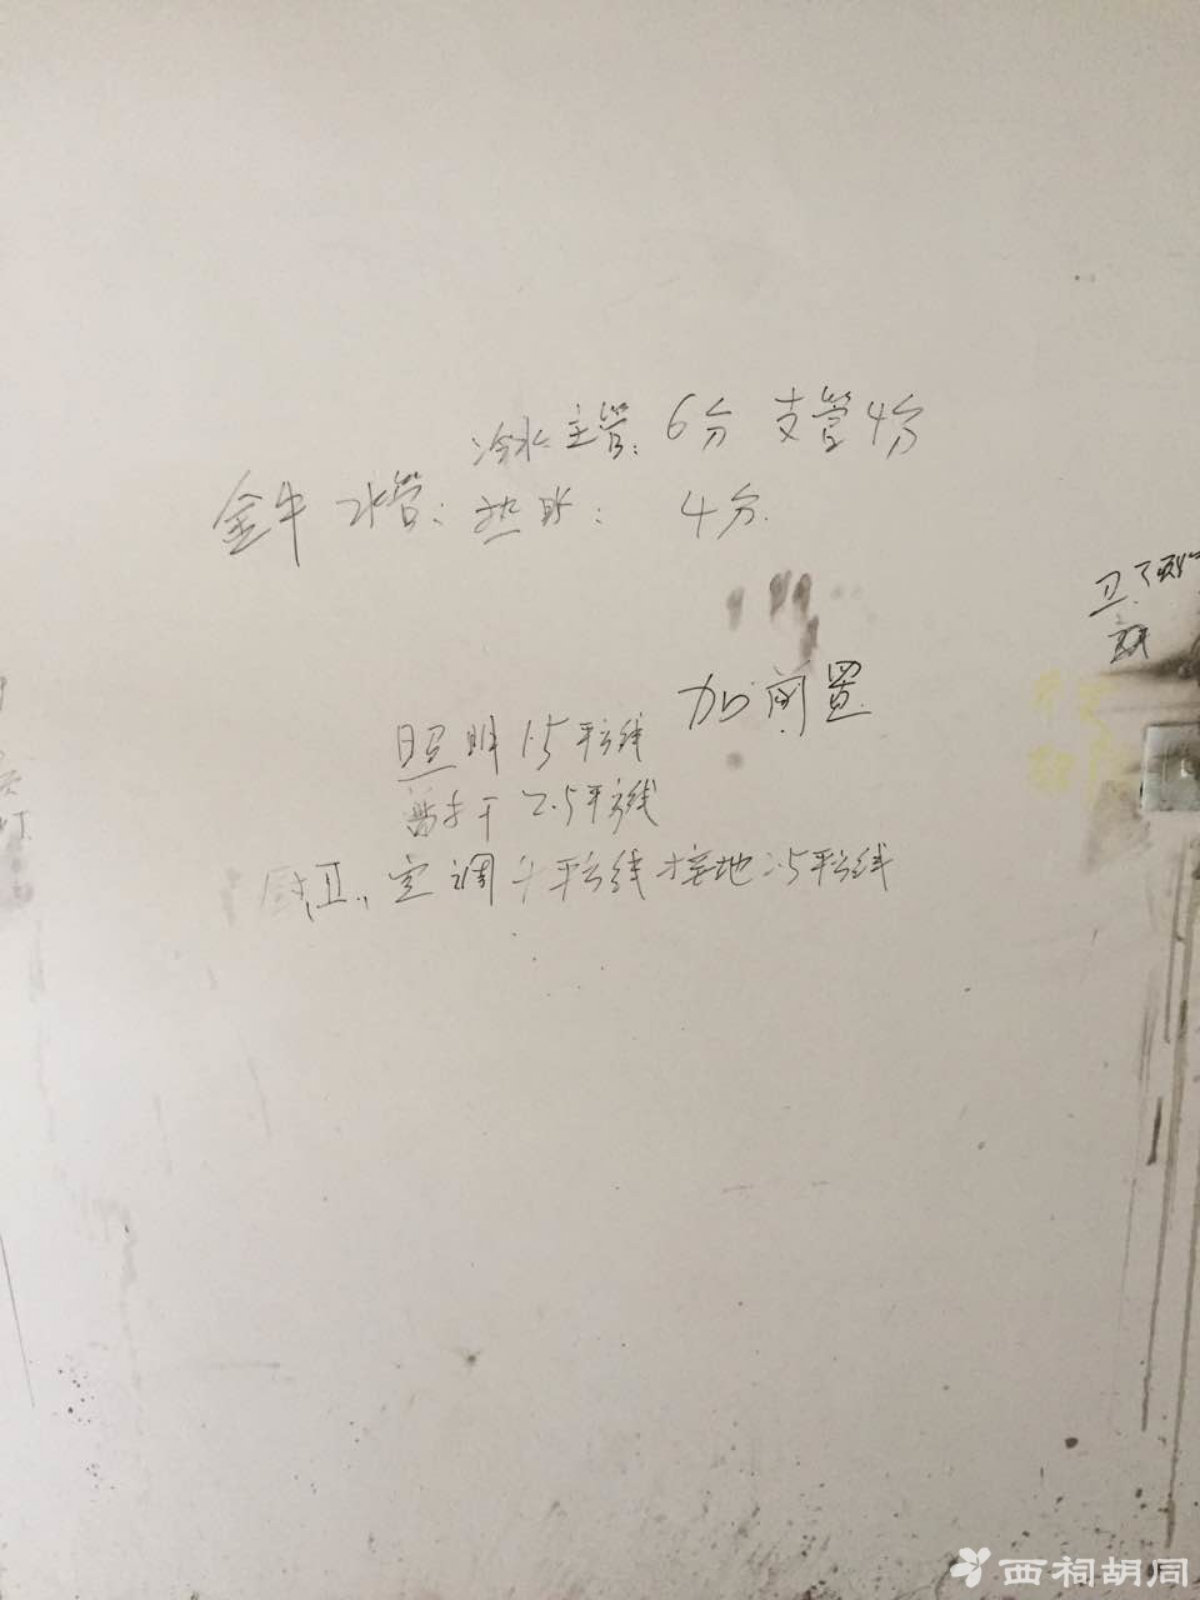 冷水主管:6分 支管4分
金牛水管:热水: 4分.
加前置
照明1.5平方线
普插 2.5平方线
厨卫、空调4平方线接地2.5平方线
西祠胡同